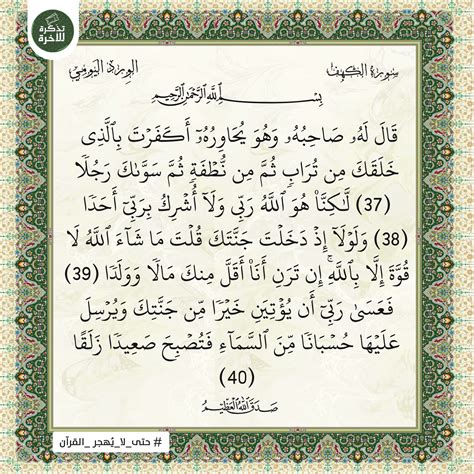 تذكرة
للآخرة
سورة الكهف
الورد اليومي
بِسْمِ اللَّهِ الرَّحْمَٰنِ الرَّحِيمِ
قَالَ لَهُۥ صَاحِبُهُۥ وَهُوَ يُحَاوِرُهُۥٓ أَكَفَرْتَ بِٱلَّذِى
خَلَقَكَ مِن تُرَابٍ ثُمَّ مِن نُّطْفَةٍ ثُمَّ سَوَّىٰكَ رَجُلًا
(37) لَّٰكِنَّا۠ هُوَ ٱللَّهُ رَبِّى وَلَآ أُشْرِكُ بِرَبِّىٓ أَحَدًا
(38) وَلَوْلَآ إِذْ دَخَلْتَ جَنَّتَكَ قُلْتَ مَا شَآءَ ٱللَّهُ لَا
قُوَّةَ إِلَّا بِٱللَّهِ ۚ إِن تَرَنِ أَنَا۠ أَقَلَّ مِنكَ مَالًا وَوَلَدًا (39)
فَعَسَىٰ رَبِّىٓ أَن يُؤْتِيَنِ خَيْرًا مِّن جَنَّتِكَ وَيُرْسِلَ
عَلَيْهَا حُسْبَانًا مِّنَ ٱلسَّمَآءِ فَتُصْبِحَ صَعِيدًا زَلَقًا
(40)
صدق الله العظيم
# حتى_لا_يُهجر _القرآن